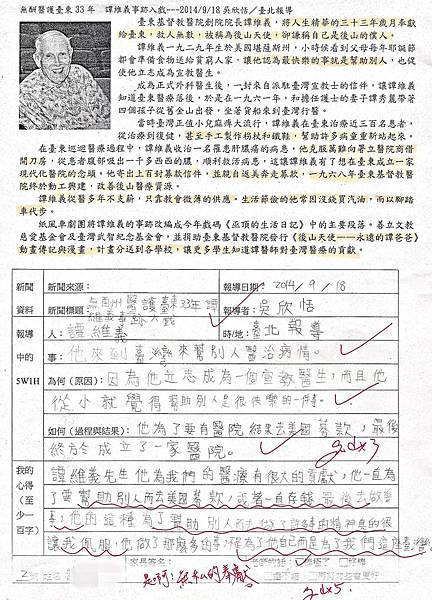 無酬醫護臺東33年 譚維義事跡入戲---2014/9/18 吳欣恬/臺北報導
臺東基督教醫院創院院長譚維義,將人生精華的三十三年歲月奉獻
給臺東,救人無數,被稱為後山天使,卻謙稱自己是後山的僕人。
譚維義一九二九年生於美國堪薩斯州,小時候看到父母每年耶誕節
都會準備食物送給貧窮人家,讓他認為最快樂的事就是幫助別人,也促
使他立志成為宣教醫生。
成為正式外科醫生後,一封來自派駐臺灣宣教士的信件,讓譚維義
知道臺東醫療落後,於是在一九六一年,和擔任護士的妻子譚秀麗帶著
四個孩子從舊金山出發,坐著貨船來到臺灣行醫。
當時臺灣正值小兒麻痺大流行,譚維義在臺東治療近三百名患者,
從治療到復健,甚至手工製作柺杖和鐵鞋,幫助許多病童重新站起來。
在臺東巡迴醫療過程中,譚維義收治一名罹患肝膿瘍的病患,他克服萬難向著立醫院商借
開刀房,從患者腹部吸出一千多西西的膿,順利救活病患,這讓譚維義有了想在臺東成立一家
現代化醫院的念頭。他寄出上百封募款信件,並親自返美奔走募款,一九六八年臺東基督教醫
院終於動工興建,改善後山醫療資源。
譚維義從醫多年不支薪,只靠教會微薄的供應。生活節儉的他常因沒錢買汽油,而以腳踏
車代步。
紙風車劇團將譚維義的事跡改編成今年戲碼《巫頂的生活日記》中的主要段落。善立文教
慈愛基金會及臺灣武智紀念基金會,並捐助臺東基督教醫院發行《後山天使——永遠的譚爸爸》
動畫傳記與漫畫,計畫分送到各學校,讓更多學生知道譚醫師對臺灣醫療的貢獻。
新聞 新聞來源: 報導日期:2014/9/18
資料 新聞標題:無酬醫護臺東33年譚維義事跡入戲 報導者:吳欣恬
報導 人:譚維義 時/地:臺北報導
中的 事:他來到臺灣來幫別人醫治病情。
5W1H 為何(原因):因為他立志成為一個宣教醫生,而且他
從小就覺得幫助別人是很快樂的一件事。
如何(過程與結果):他為了要有醫院結果去美國募款,最後
終於成立了一家醫院。
我的
心得
(至
少一
百字)
譚維義先生他為我們的醫療有很大的貢獻,他一直為
了要幫助別人而去美國募款,或著一直存錢最後去做善
事,他的這種為了幫助別人而去做了許多事的精神真的很
讓我佩服,他做了那麼多的事,不為了他自己而是為了我們這座臺灣。
家長簽名:
是啊!無私的奉獻。